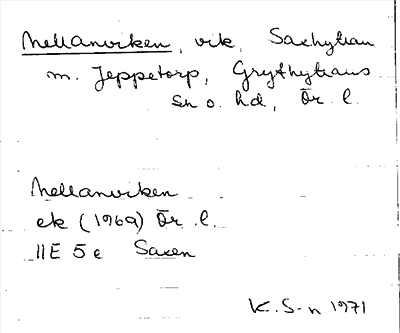 Mellanviken, vik, Saxhyttan
m. Jeppetorp, Grythyttans
sn o. hd, Ör. l.
Mellanviken
ek (1969) Ör. l.
11E 5e Saxen
K. S-n 1971